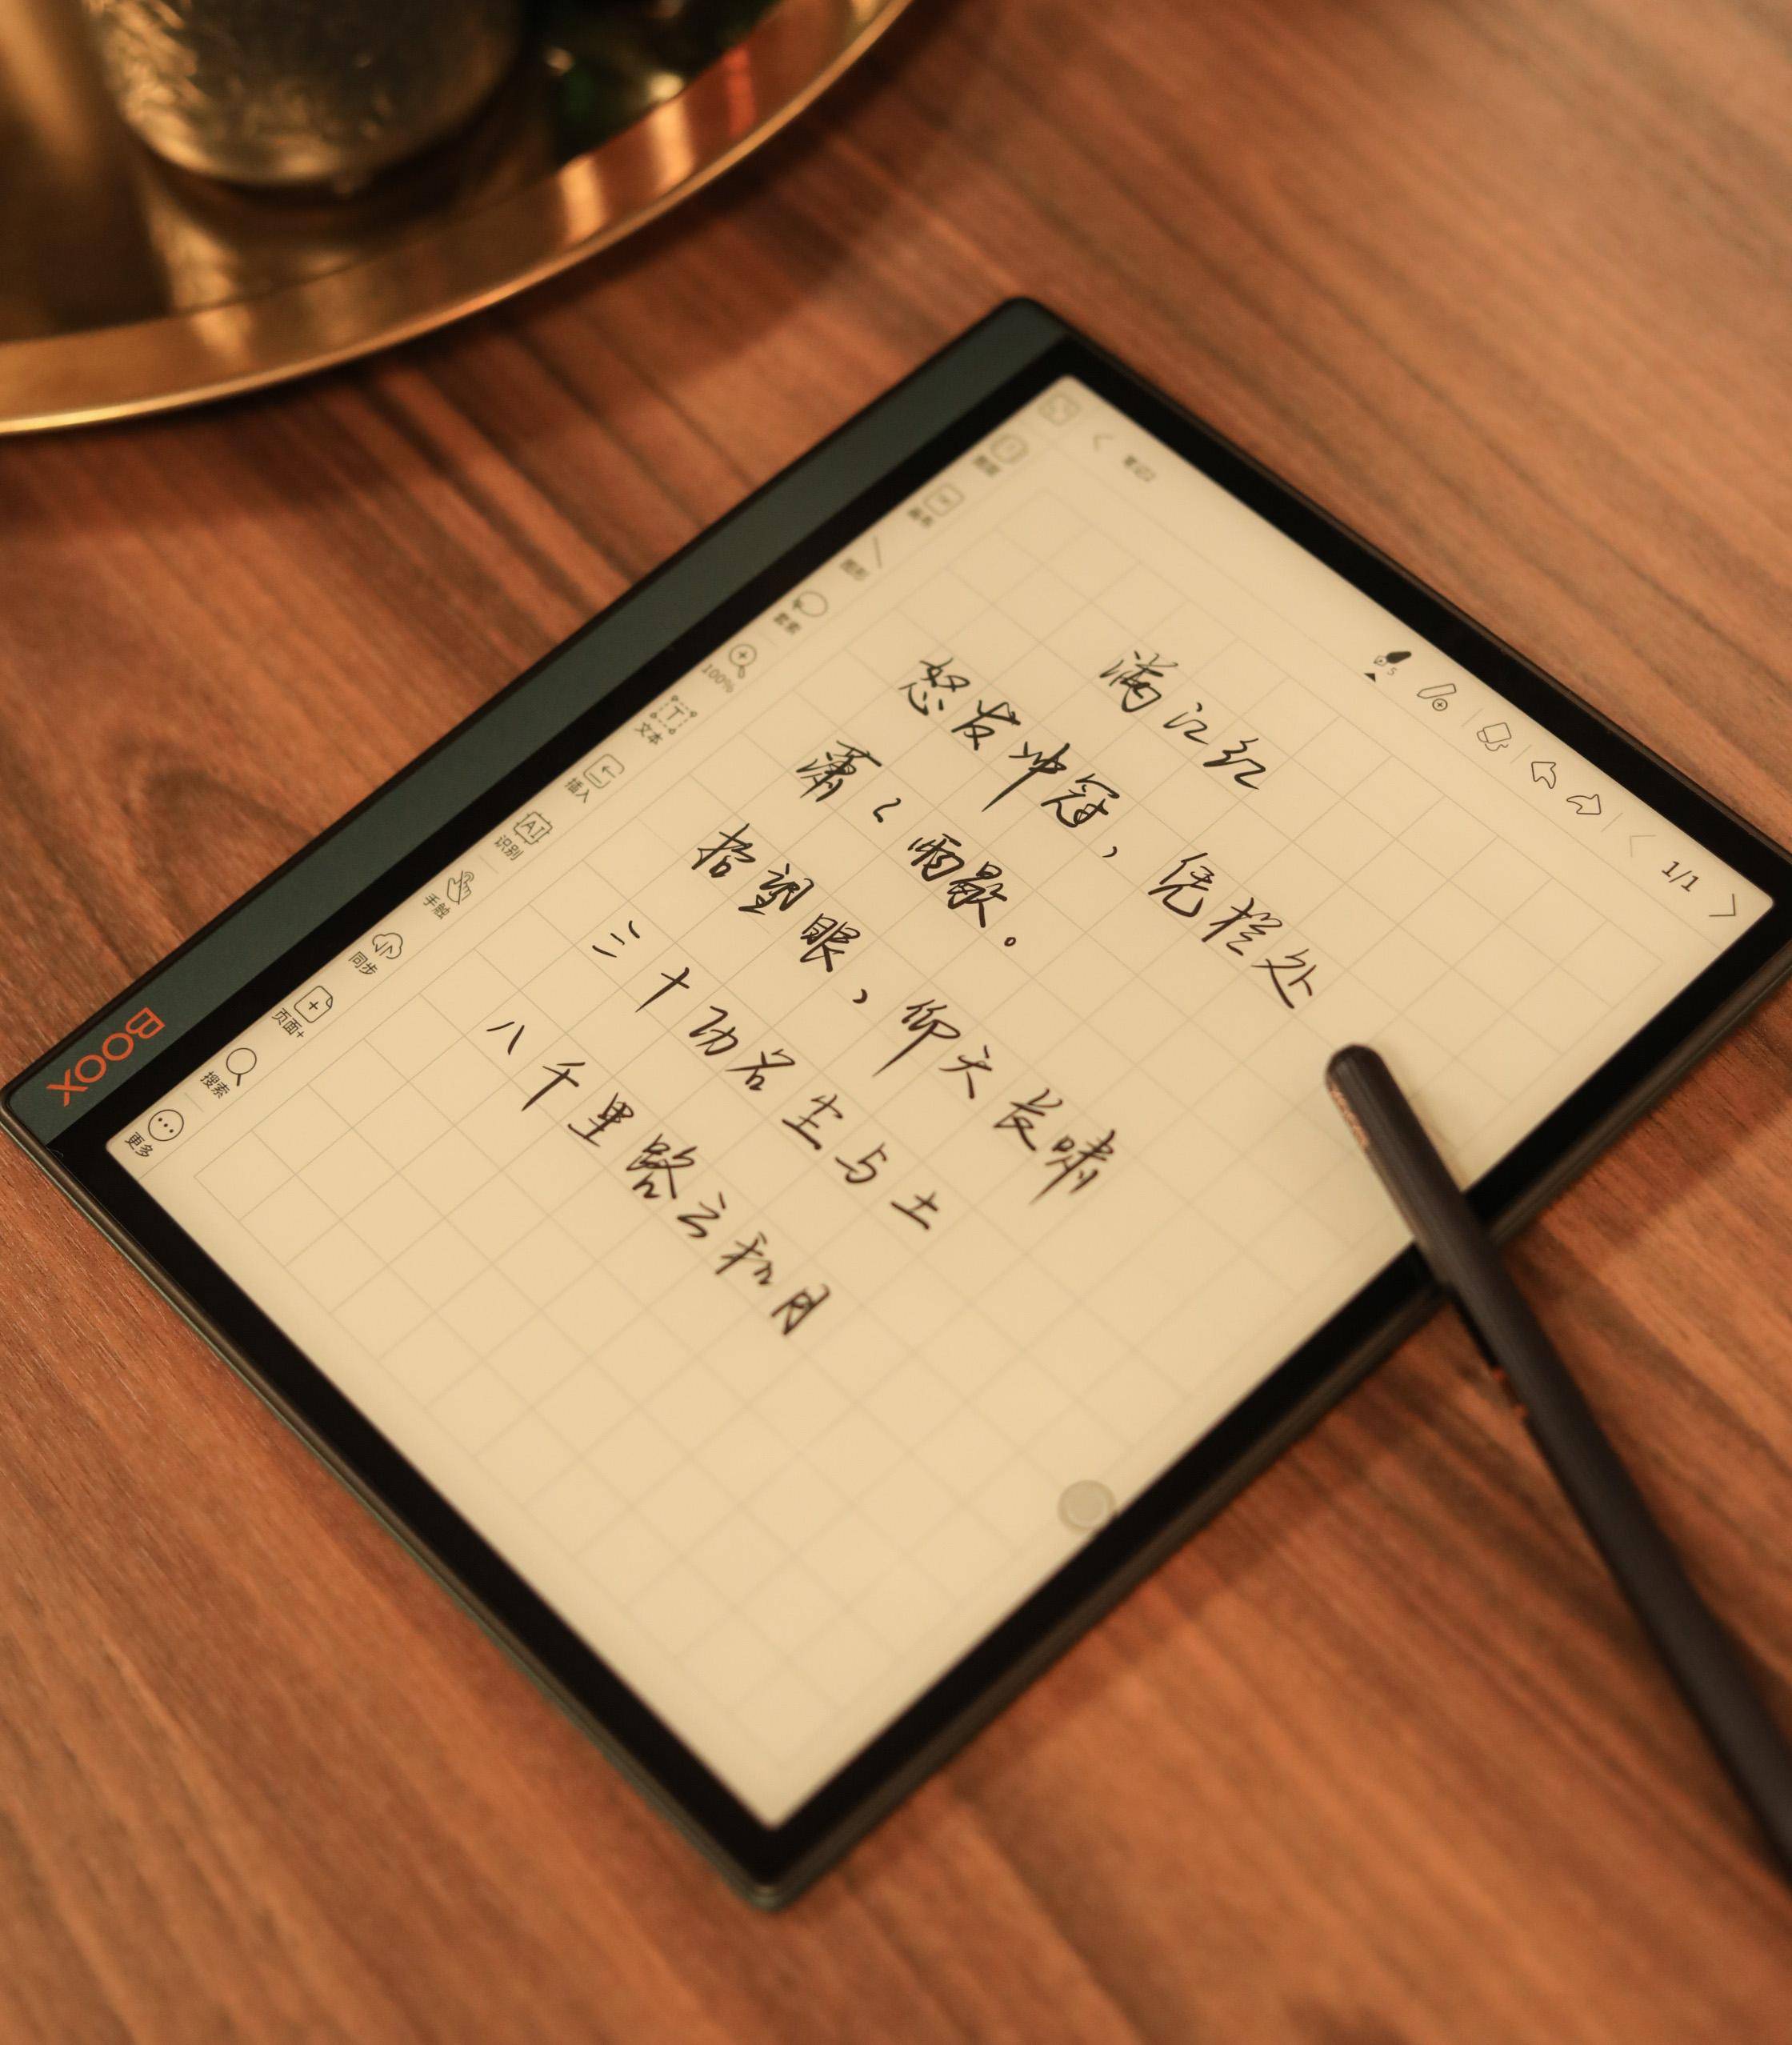 笔记
1/1
满江红
怒发冲冠，凭栏处
潇々雨歇。
抬望眼，仰天长啸
三十功名尘与土
八千里路云和月
图形
套索
100%
T
文本
插入
AI
识别
手触
同步
页面+
搜索
更多
BOOX